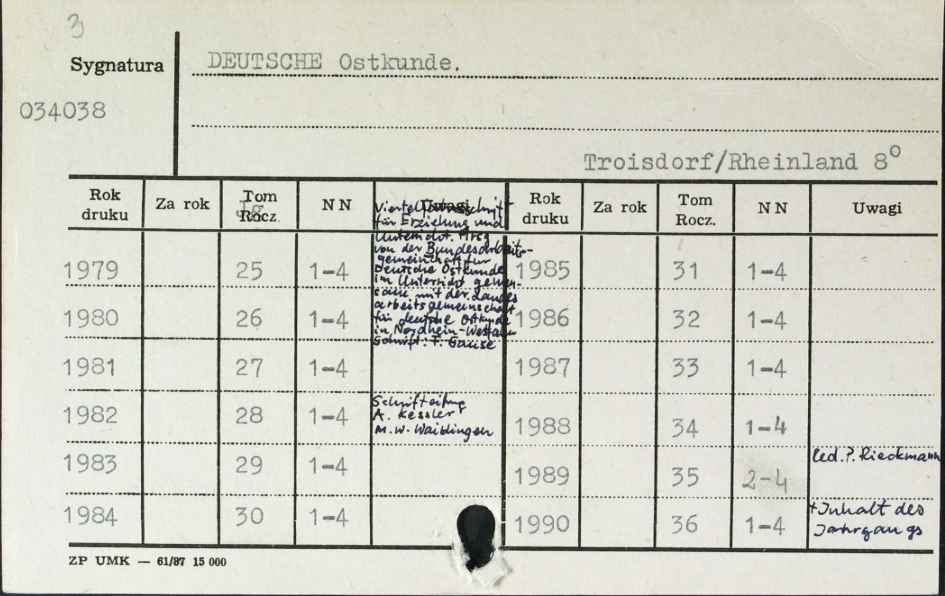 3
Sygnatura DEUTSCHE Ostkunde.
034038
Troisdorf/Rheinland 8°
Rok druku Za rok Tom Rocz. NN Uwagi Rok druku Za rok Tom Rocz. NN Uwagi
Viertel
für Erziehung und
Unterricht. Hrsg
von der Bundesarbeits-
gemeinschaft für
Deutsche Ostkunde
im Unterricht gemein-
same mit der Landes
arbeitsgemeinschaft
für deutsche Ostkunde
in Nordhein-Westfalen
Schrift: F. Gause
1979 25 1-4 1985 31 1-4
1980 26 1-4 1986 32 1-4
1981 27 1-4 1987 33 1-4
Schriftleitung
A. Kessler,
M.W. Waiblingen
1982 28 1-4 1988 34 1-4
1983 29 1-4 1989 35 2-4 Red. P. Rieckmann
1984 30 1-4 1990 36 1-4 +Inhalt des
Jahrgangs
ZP UMK — 61/87 15 000